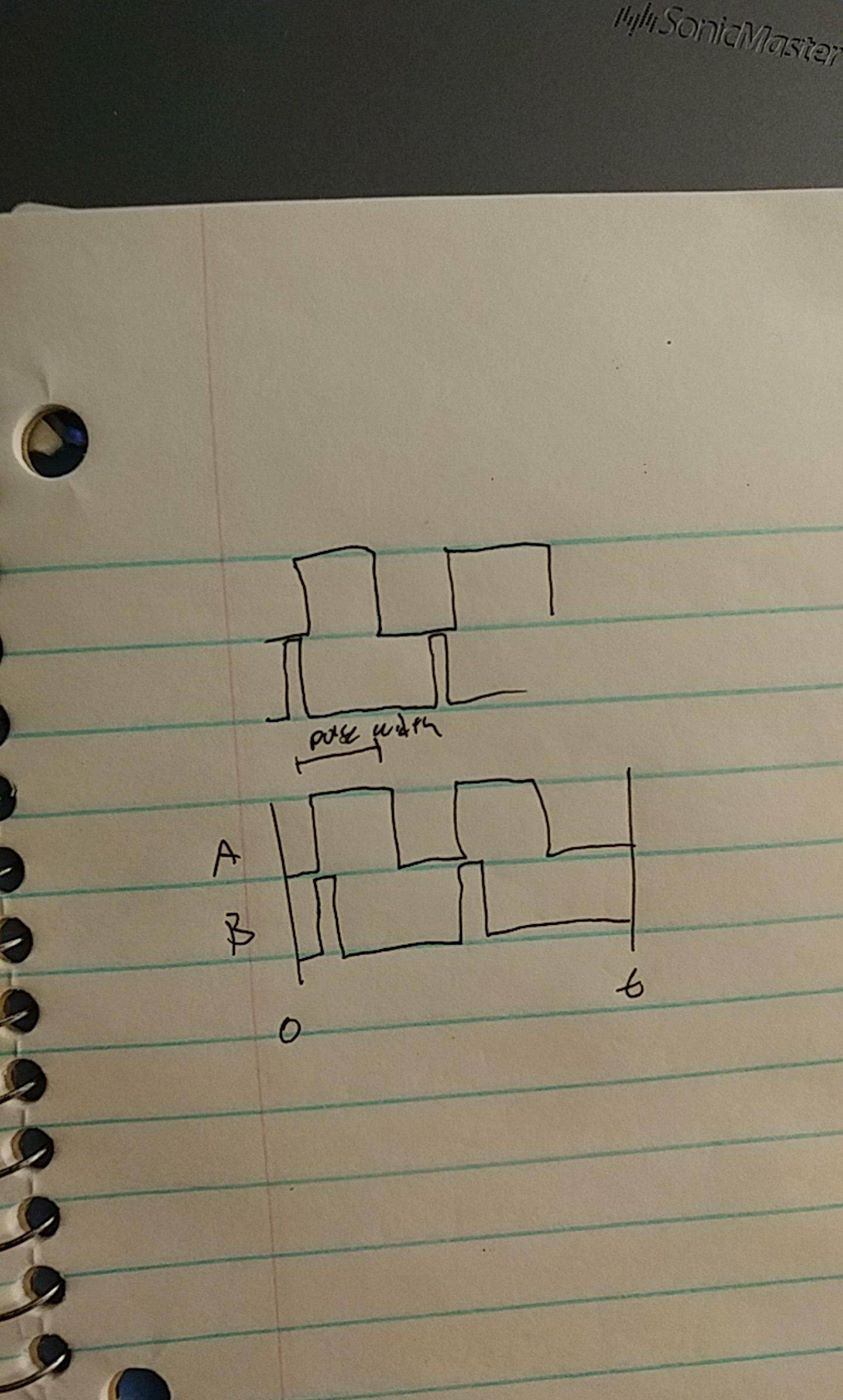 SonicMaster
pulse width
A
B
0